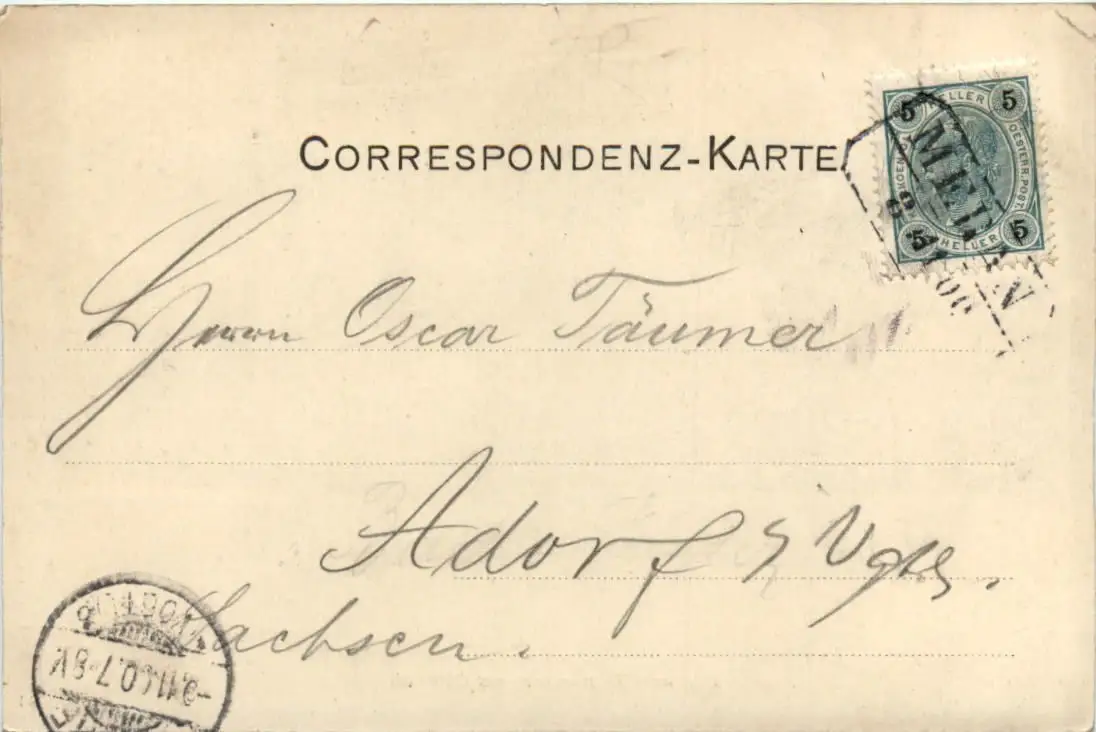 CORRESPONDENZ-KARTE
5 HELLER 5
OESTERR. POST
5 HELLER 5
MERAN
8 11 00
Herrn Oscar Täumer
Adorf i/ Vgtl.
Sachsen.
VOGTL
9 11 00. 7-8V